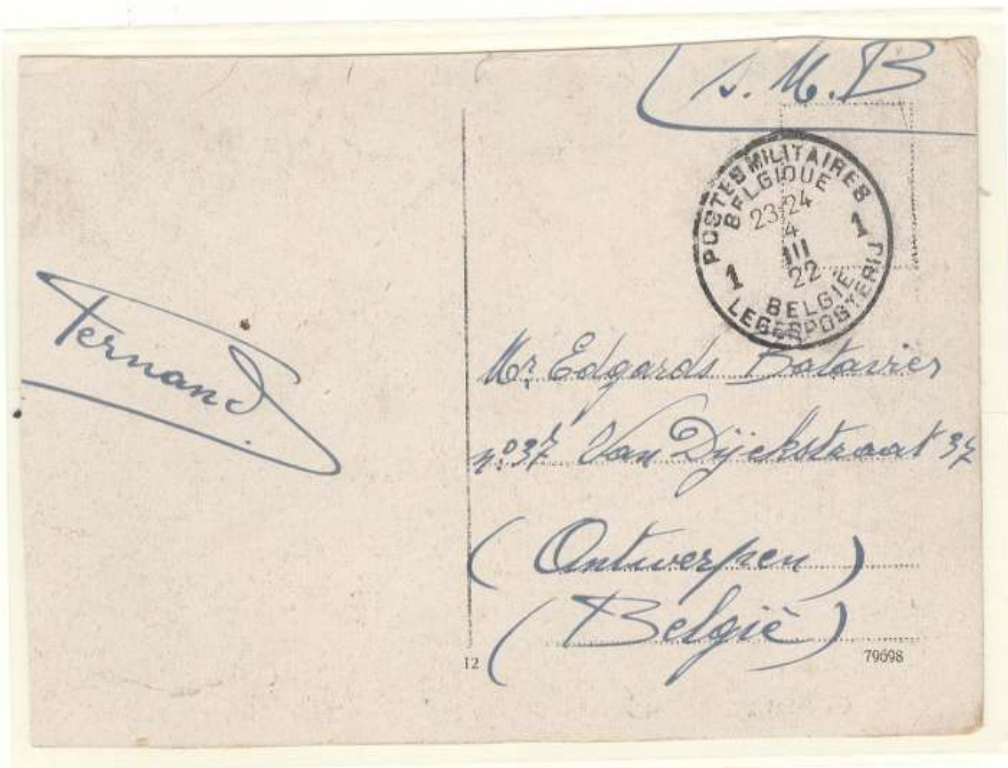 S. M. B
POSTES MILITAIRES
BELGIQUE
23-24
4
III
22
1 1
BELGIE
LEGERPOSTERIJ
Fernand
Mr. Edgards Batavier
nº 37 Van Dijckstraat 37
(Antwerpen)
(België)
12
79698